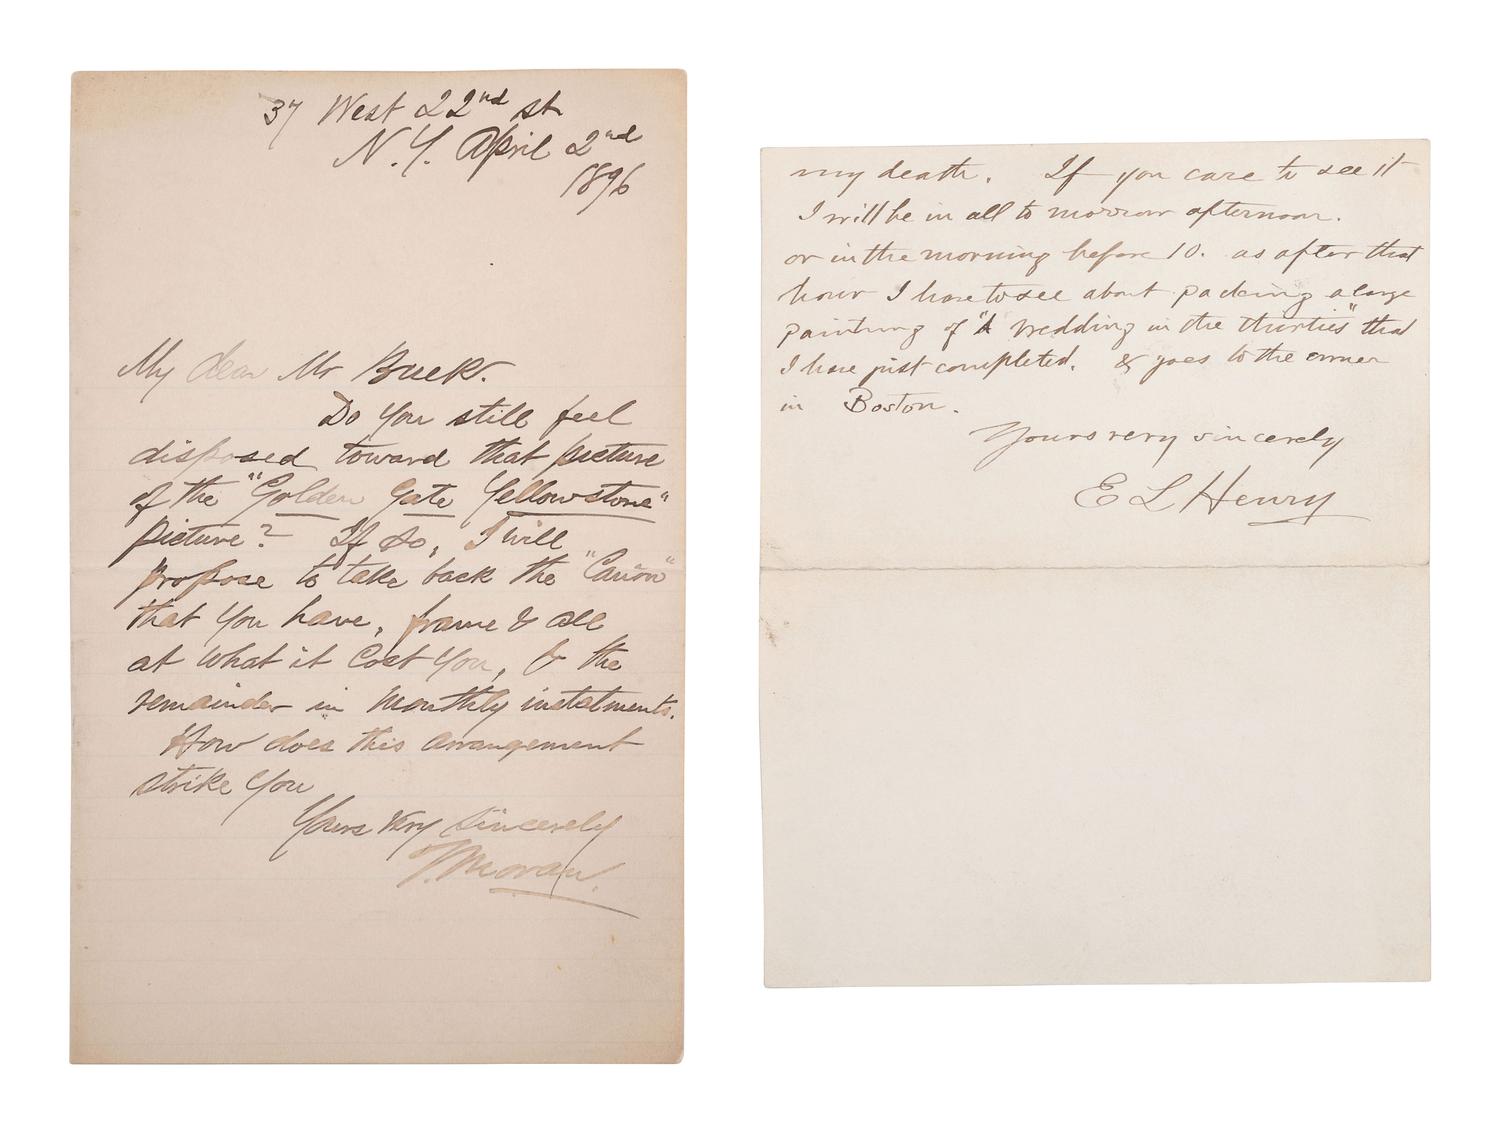 37 West 22nd st
N.Y. April 2nd
1896
My dear Mr Buek.
Do you still feel
disposed toward that picture
of the "Golden Gate Yellowstone"
picture? If so, I will
propose to take back the "Cañon"
that you have, frame & all
at what it cost you, & the
remainder in monthly instalments.
How does this arrangement
strike you
Yours very sincerely
T. Moran.
my death. If you care to see it
I will be in all to morrow afternoon.
or in the morning before 10. as after that
hour I have to see about packing a large
painting of "A Wedding in the thirties" that
I have just completed. & goes to the owner
in Boston.
Yours very sincerely
E L Henry